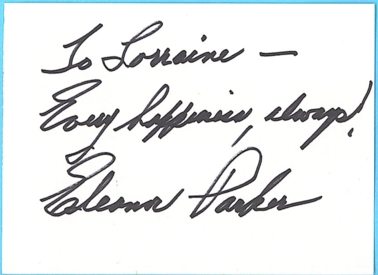 To Lorraine —
Every happiness, always!
Eleanor Parker